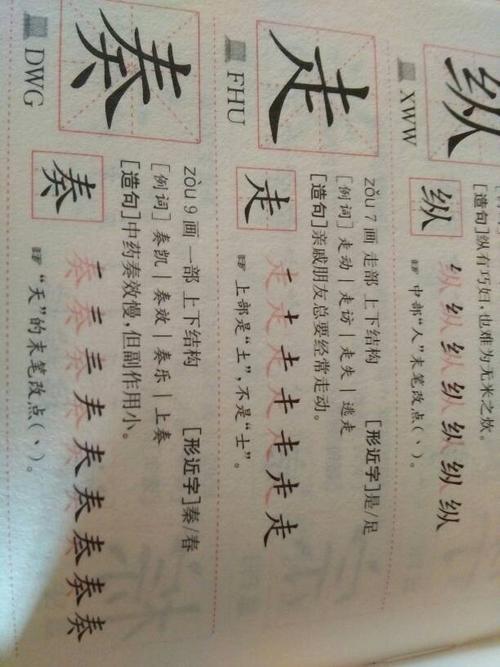 纵
XWW
[造句]纵有巧妇,也难为无米之炊。
纵
中部“人”末笔改点(丶)。
走
FHU
zǒu 7画 走部 上下结构 [形近字]是/足
[例词]走动|走访|走失|逃走
[造句]亲戚朋友总要经常走动。
走
上部是“土”,不是“士”。
奏
DWG
zòu 9画 一部 上下结构 [形近字]秦/春
[例词]奏凯|奏效|奏乐|上奏
[造句]中药奏效慢,但副作用小。
奏
“天”的末笔改点(丶)。